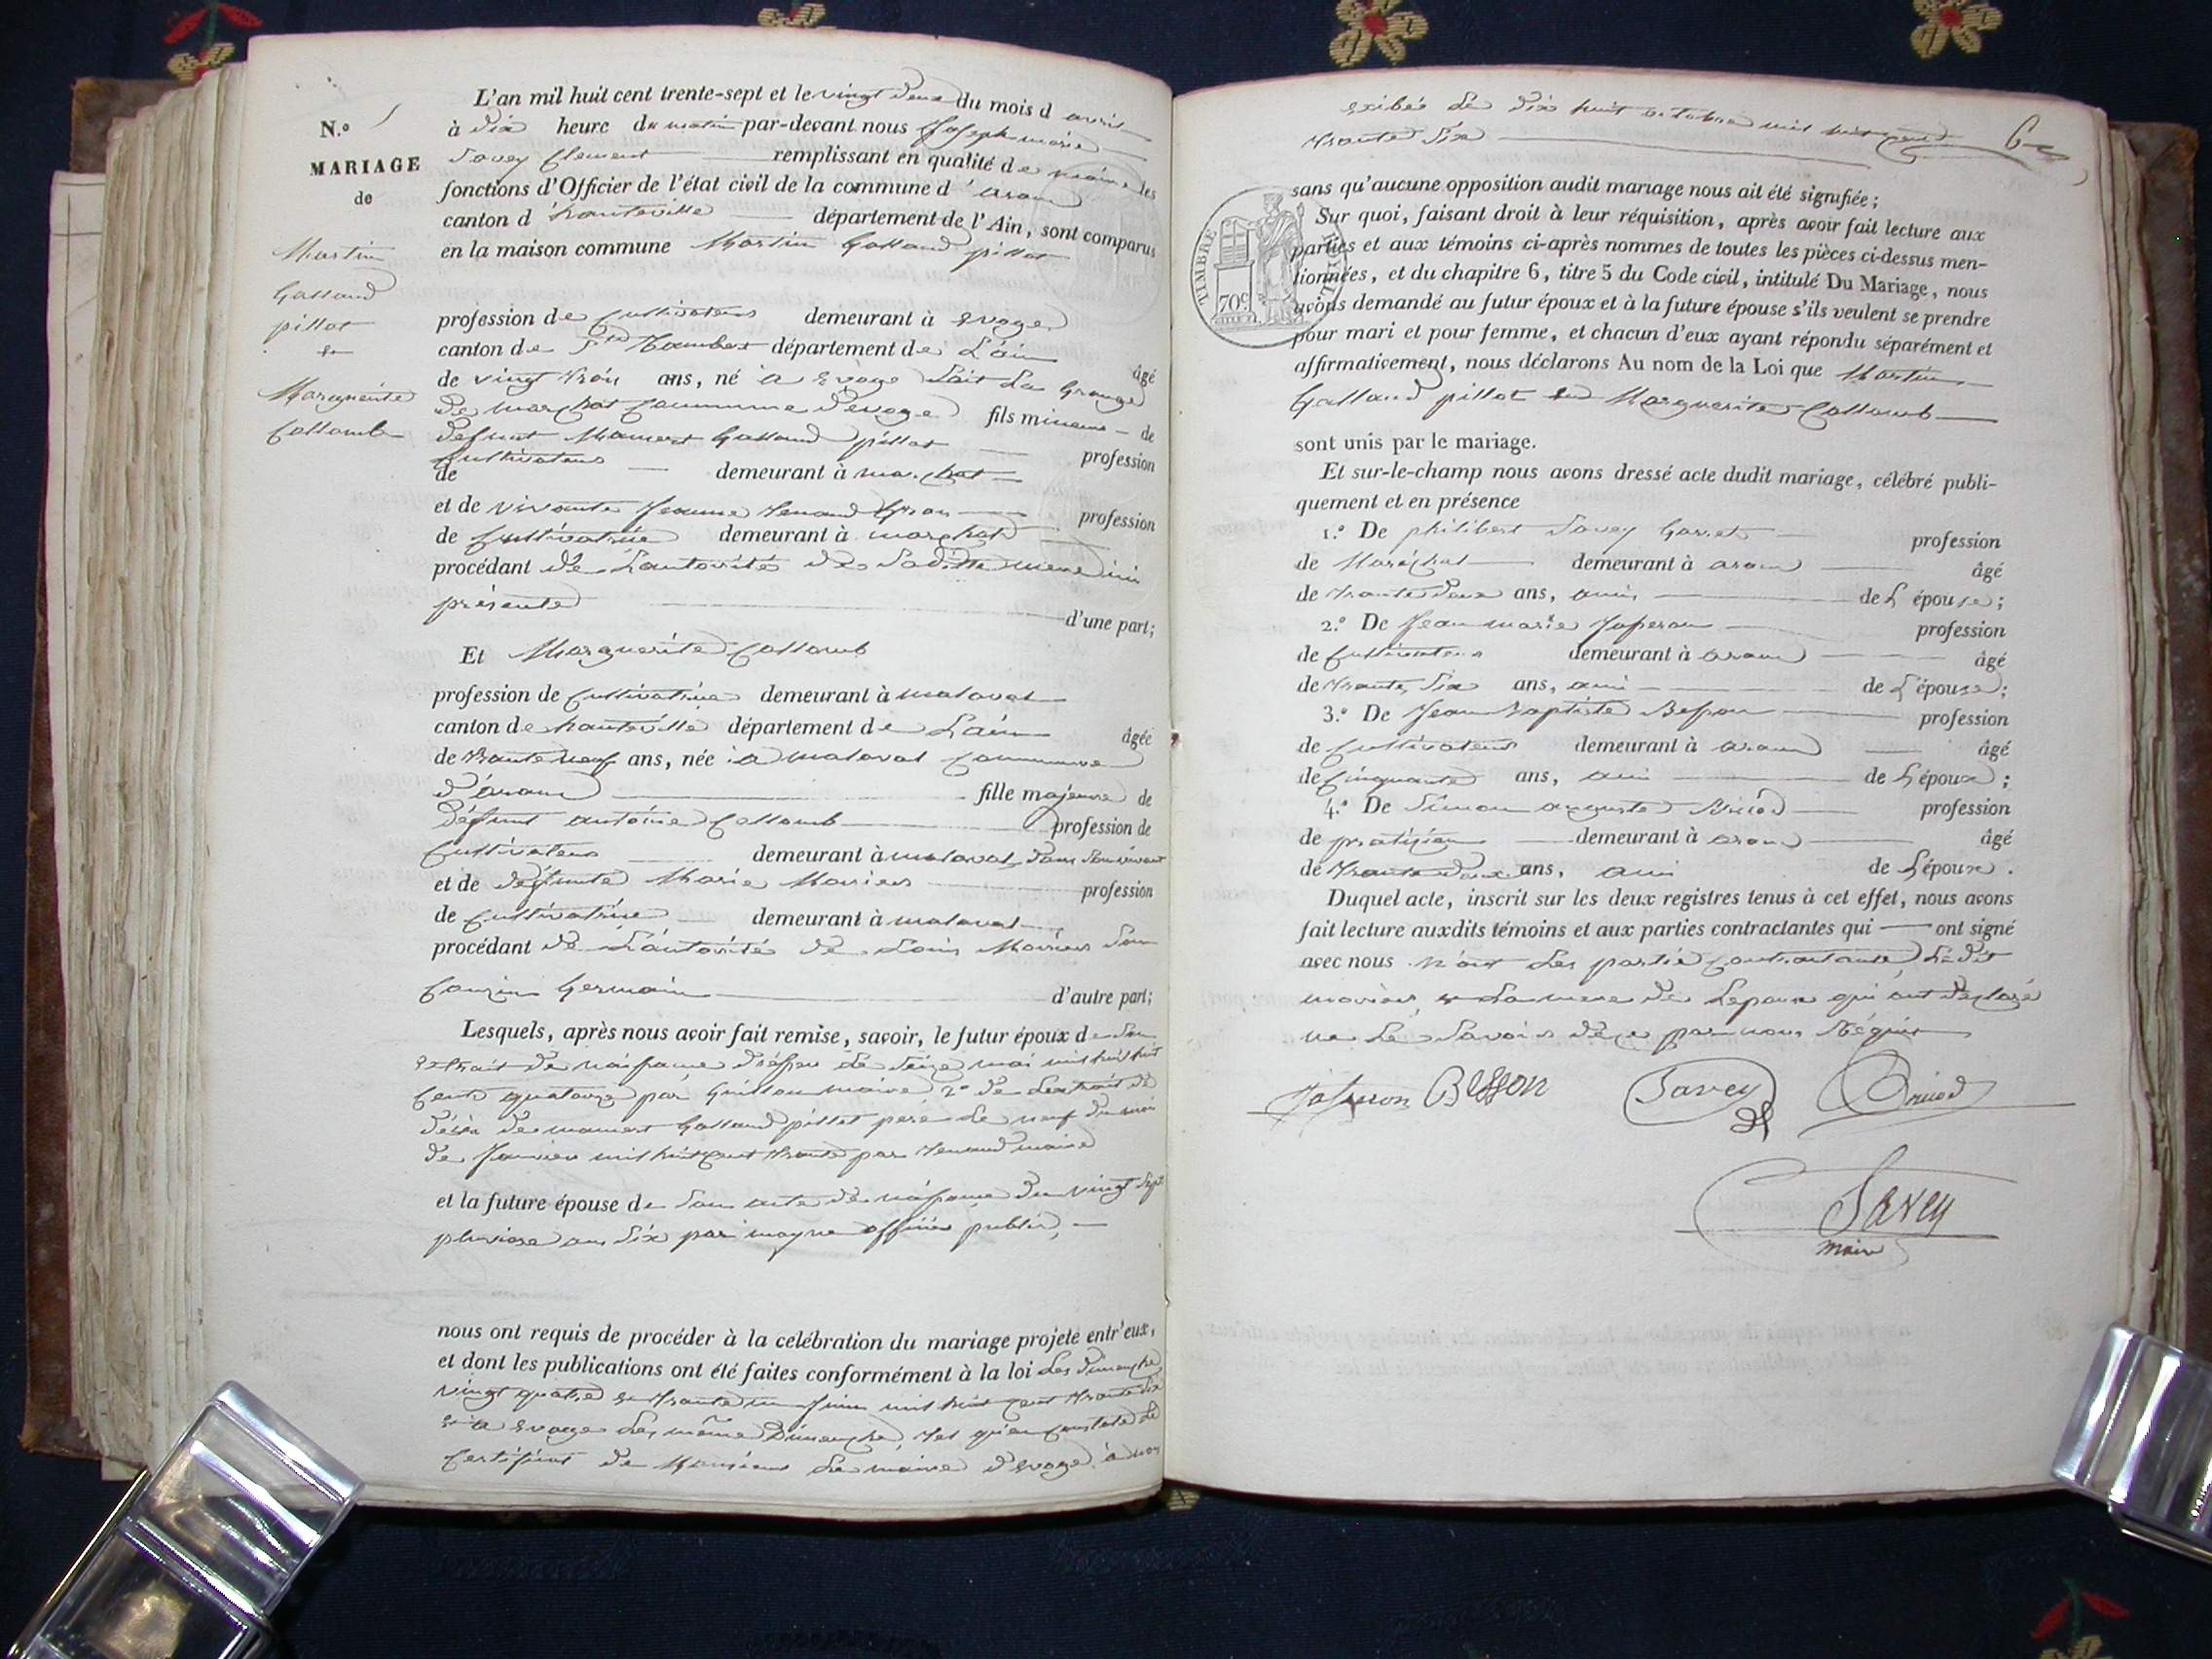 N.o 1
MARIAGE
de
Martin
Galland
pillot
&
Marguerite
Collomb
L'an mil huit cent trente-sept et le vingt deux du mois d avril
à dix heure du matin par-devant nous Joseph marie
Savey Clement remplissant en qualité de maire les
fonctions d'Officier de l'état civil de la commune d'aran
canton d'hauteville département de l'Ain, sont comparus
en la maison commune Martin Galland pillot
profession de Cultivateur demeurant à Evoge
canton de St Rambert département de L'ain
âgé
de vingt trois ans, né à Evoge Lait La Grange
de marchat Commune d'evoge fils mineur de
defunt Mamert Galland pillot profession
de Cultivateur demeurant à marchat
et de vivante Jeanne profession
de Cultivatrice demeurant à marchat
procédant de L'autorités de Saditte mere ici
présente d'une part;
Et Marguerite Collomb
profession de Cultivatrice demeurant à malaval
canton de hauteville département de L'ain âgée
de trente neuf ans, née à malaval Commune
d'aran fille majeure de
défunt antoine Collomb profession de
Cultivateur demeurant à malaval, dans son vivant
et de défunte Marie profession
de Cultivatrice demeurant à malaval
procédant de L'autorités de Louis son
Cousin Germain d'autre part;
Lesquels, après nous avoir fait remise, savoir, le futur époux de son
Extrait de naissance dressée Le Seize mai mil huit
Cent quatorze par Guillon maire 2o de Lextrait de
décès de mamert Galland pillot pere Le neuf du mois
de Janvier mil huit cent trente par maire
et la future épouse de Son acte de naissance du vingt Sept
pluviose an Six par mayne officier public,
nous ont requis de procéder à la celébration du mariage projeté entr'eux,
et dont les publications ont été faites conformément à la loi Les dimanche
vingt quatre & trente un mil huit cent trente Six
& a Evoge Les même Dimanche, tel qu'en constate Le
Certificat de Monsieur Le maire d'Evoge à nous
exibée Le dix huit octobre mil huit cent
trante Six
6
TIMBRE
70c
sans qu'aucune opposition audit mariage nous ait été signifiée;
Sur quoi, faisant droit à leur réquisition, après avoir fait lecture aux
parties et aux témoins ci-après nommes de toutes les pièces ci-dessus men-
tionnées, et du chapitre 6, titre 5 du Code civil, intitulé Du Mariage, nous
avons demandé au futur époux et à la future épouse s'ils veulent se prendre
pour mari et pour femme, et chacun d'eux ayant répondu séparément et
affirmativement, nous déclarons Au nom de la Loi que Martin
Galland pillot & Marguerite Collomb
sont unis par le mariage.
Et sur-le-champ nous avons dressé acte dudit mariage, célébré publi-
quement et en présence
1.o De philibert Savey Garret profession
de Maréchal demeurant à aran âgé
de trante deux ans, ami de L'épouse;
2.o De Jean marie Josseron profession
de Cultivateur demeurant à aran âgé
de trante Six ans, ami de L'épouse;
3.o De Jean Baptiste Besson profession
de Cultivateur demeurant à aran âgé
de Cinquante ans, ami de L'époux;
4.o De Simon auguste Bricod profession
de praticien demeurant à aran âgé
de trante deux ans, ami de L'époux.
Duquel acte, inscrit sur les deux registres tenus à cet effet, nous avons
fait lecture auxdits témoins et aux parties contractantes qui ont signé
avec nous n'ont Les partie Contractante Ledit
& La mere de Lepoux qui ont declaré
ne Le Savoir de ce par nous
Besson Savey
Savey
maire